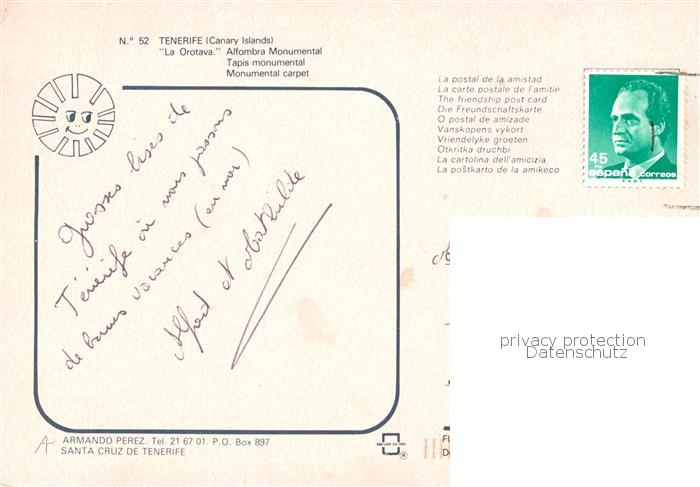 N.º 52 TENERIFE (Canary Islands)
"La Orotava." Alfombra Monumental
Tapis monumental
Monumental carpet
La postal de la amistad
La carte postale de l'amitié
The friendship post card
Die Freundschaftskarte
O postal de amizade
Vanskapens vykort
Vriendelyke groeten
Otkritka druchbi
La cartolina dell'amicizia
La poŝtkarto de la amikeco
45
PTA
españa correos
Grosses bises de
Ténérife où nous passons
de bonnes vacances (en noir)
et Mathilde
privacy protection
Datenschutz
A ARMANDO PEREZ. Tel. 21 67 01. P.O. Box 897
SANTA CRUZ DE TENERIFE
ESCUDO DE ORO
®